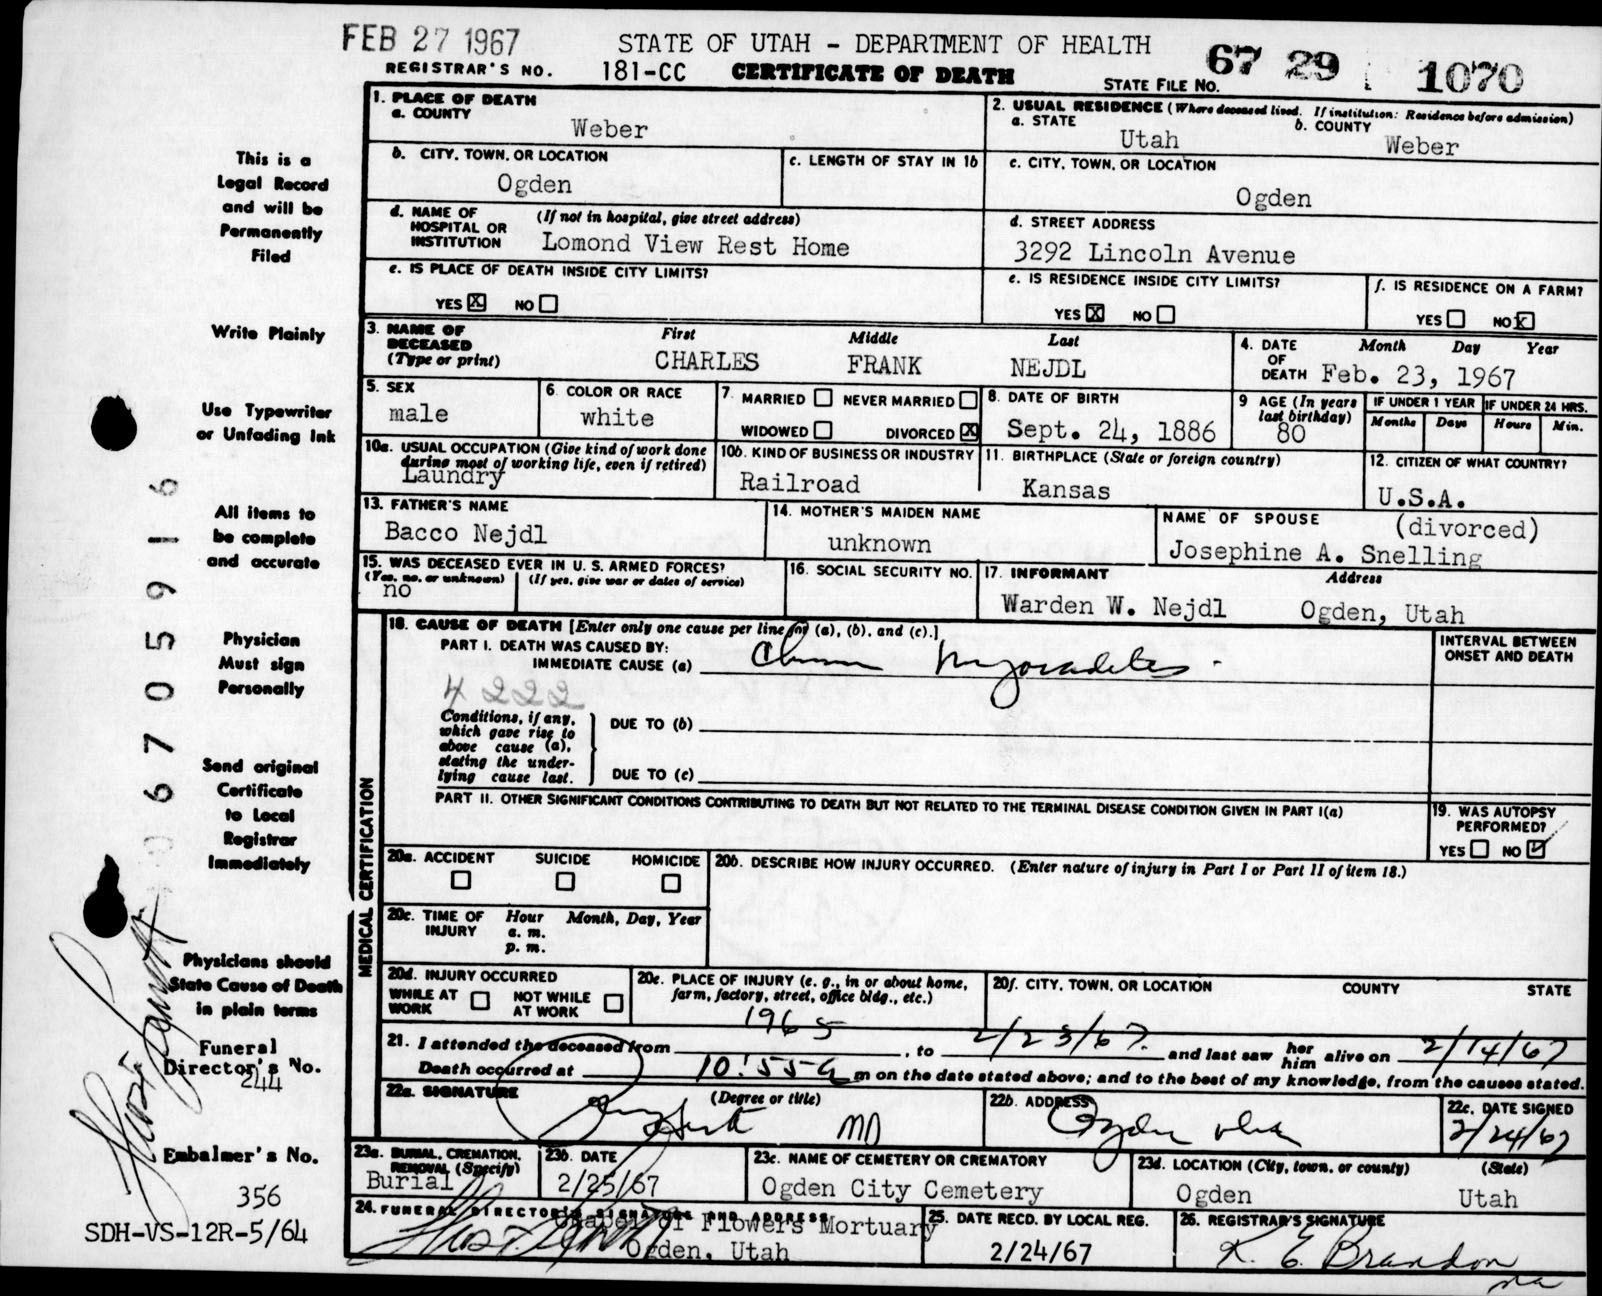 FEB 27 1967
STATE OF UTAH - DEPARTMENT OF HEALTH
REGISTRAR'S NO. 181-CC CERTIFICATE OF DEATH STATE FILE NO. 67 29 1070
This is a
Legal Record
and will be
Permanently
Filed
Write Plainly
Use Typewriter
or Unfading Ink
All items to
be complete
and accurate
Physician
Must sign
Personally
Send original
Certificate
to Local
Registrar
Immediately
Physicians should
State Cause of Death
in plain terms
Funeral
Director's No.
244
Embalmer's No.
356
SDH-VS-12R-5/64
6705916
1. PLACE OF DEATH
a. COUNTY
Weber
2. USUAL RESIDENCE (Where deceased lived. If institution: Residence before admission)
a. STATE
Utah
b. COUNTY
Weber
b. CITY, TOWN, OR LOCATION
Ogden
c. LENGTH OF STAY IN 1b
c. CITY, TOWN, OR LOCATION
Ogden
d. NAME OF HOSPITAL OR INSTITUTION (If not in hospital, give street address)
Lomond View Rest Home
d. STREET ADDRESS
3292 Lincoln Avenue
e. IS PLACE OF DEATH INSIDE CITY LIMITS?
YES X NO
e. IS RESIDENCE INSIDE CITY LIMITS?
YES X NO
f. IS RESIDENCE ON A FARM?
YES NO X
3. NAME OF DECEASED (Type or print)
First Middle Last
CHARLES FRANK NEJDL
4. DATE OF DEATH Month Day Year
Feb. 23, 1967
5. SEX
male
6. COLOR OR RACE
white
7. MARRIED NEVER MARRIED
WIDOWED DIVORCED X
8. DATE OF BIRTH
Sept. 24, 1886
9 AGE (In years last birthday)
80
IF UNDER 1 YEAR IF UNDER 24 HRS.
Months Days Hours Min.
10a. USUAL OCCUPATION (Give kind of work done during most of working life, even if retired)
Laundry
10b. KIND OF BUSINESS OR INDUSTRY
Railroad
11. BIRTHPLACE (State or foreign country)
Kansas
12. CITIZEN OF WHAT COUNTRY?
U.S.A.
13. FATHER'S NAME
Bacco Nejdl
14. MOTHER'S MAIDEN NAME
unknown
NAME OF SPOUSE (divorced)
Josephine A. Snelling
15. WAS DECEASED EVER IN U. S. ARMED FORCES?
(Yes, no, or unknown) (If yes, give war or dates of service)
no
16. SOCIAL SECURITY NO.
17. INFORMANT Address
Warden W. Nejdl Ogden, Utah
MEDICAL CERTIFICATION
18. CAUSE OF DEATH [Enter only one cause per line for (a), (b), and (c).]
PART I. DEATH WAS CAUSED BY:
IMMEDIATE CAUSE (a)
INTERVAL BETWEEN ONSET AND DEATH
4222
Conditions, if any, which gave rise to above cause (a), stating the underlying cause last.
DUE TO (b)
DUE TO (c)
PART II. OTHER SIGNIFICANT CONDITIONS CONTRIBUTING TO DEATH BUT NOT RELATED TO THE TERMINAL DISEASE CONDITION GIVEN IN PART I(a)
19. WAS AUTOPSY PERFORMED?
YES NO
20a. ACCIDENT SUICIDE HOMICIDE
20b. DESCRIBE HOW INJURY OCCURRED. (Enter nature of injury in Part I or Part II of item 18.)
20c. TIME OF INJURY Hour Month, Day, Year
a. m.
p. m.
20d. INJURY OCCURRED
WHILE AT WORK NOT WHILE AT WORK
20e. PLACE OF INJURY (e. g., in or about home, farm, factory, street, office bldg., etc.)
20f. CITY, TOWN, OR LOCATION COUNTY STATE
21. I attended the deceased from 1965, to 2/23/67. and last saw her him alive on 2/14/67
Death occurred at 10:55 a m on the date stated above; and to the best of my knowledge, from the causes stated.
22a. SIGNATURE (Degree or title)
MD
22b. ADDRESS
Ogden Utah
22c. DATE SIGNED
2/24/67
23a. BURIAL, CREMATION, REMOVAL (Specify)
Burial
23b. DATE
2/25/67
23c. NAME OF CEMETERY OR CREMATORY
Ogden City Cemetery
23d. LOCATION (City, town, or county) (State)
Ogden Utah
24. FUNERAL DIRECTOR'S SIGNATURE AND ADDRESS
Chapel of Flowers Mortuary
Ogden, Utah
25. DATE RECD. BY LOCAL REG.
2/24/67
26. REGISTRAR'S SIGNATURE
K. E. Brandon